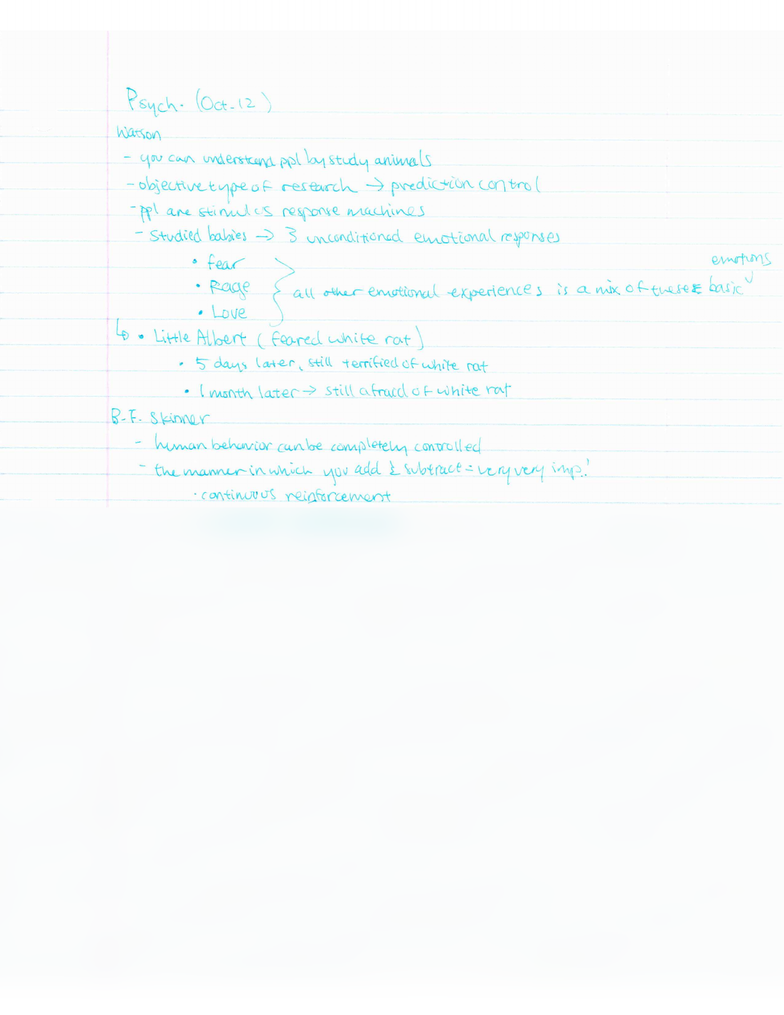 Psych. (Oct. 12)
Watson
- you can understand ppl by study animals
- objective type of research → prediction control
- ppl are stimulus response machines
- Studied babies → 3 unconditioned emotional responses
• fear
• Rage
• Love
} all other emotional experiences is a mix of these basic emotions
↳ • Little Albert (feared white rat)
• 5 days later, still terrified of white rat
• 1 month later → still afraid of white rat
B.F. Skinner
- human behavior can be completely controlled
- the manner in which you add & subtract = very very imp!
• continuous reinforcement